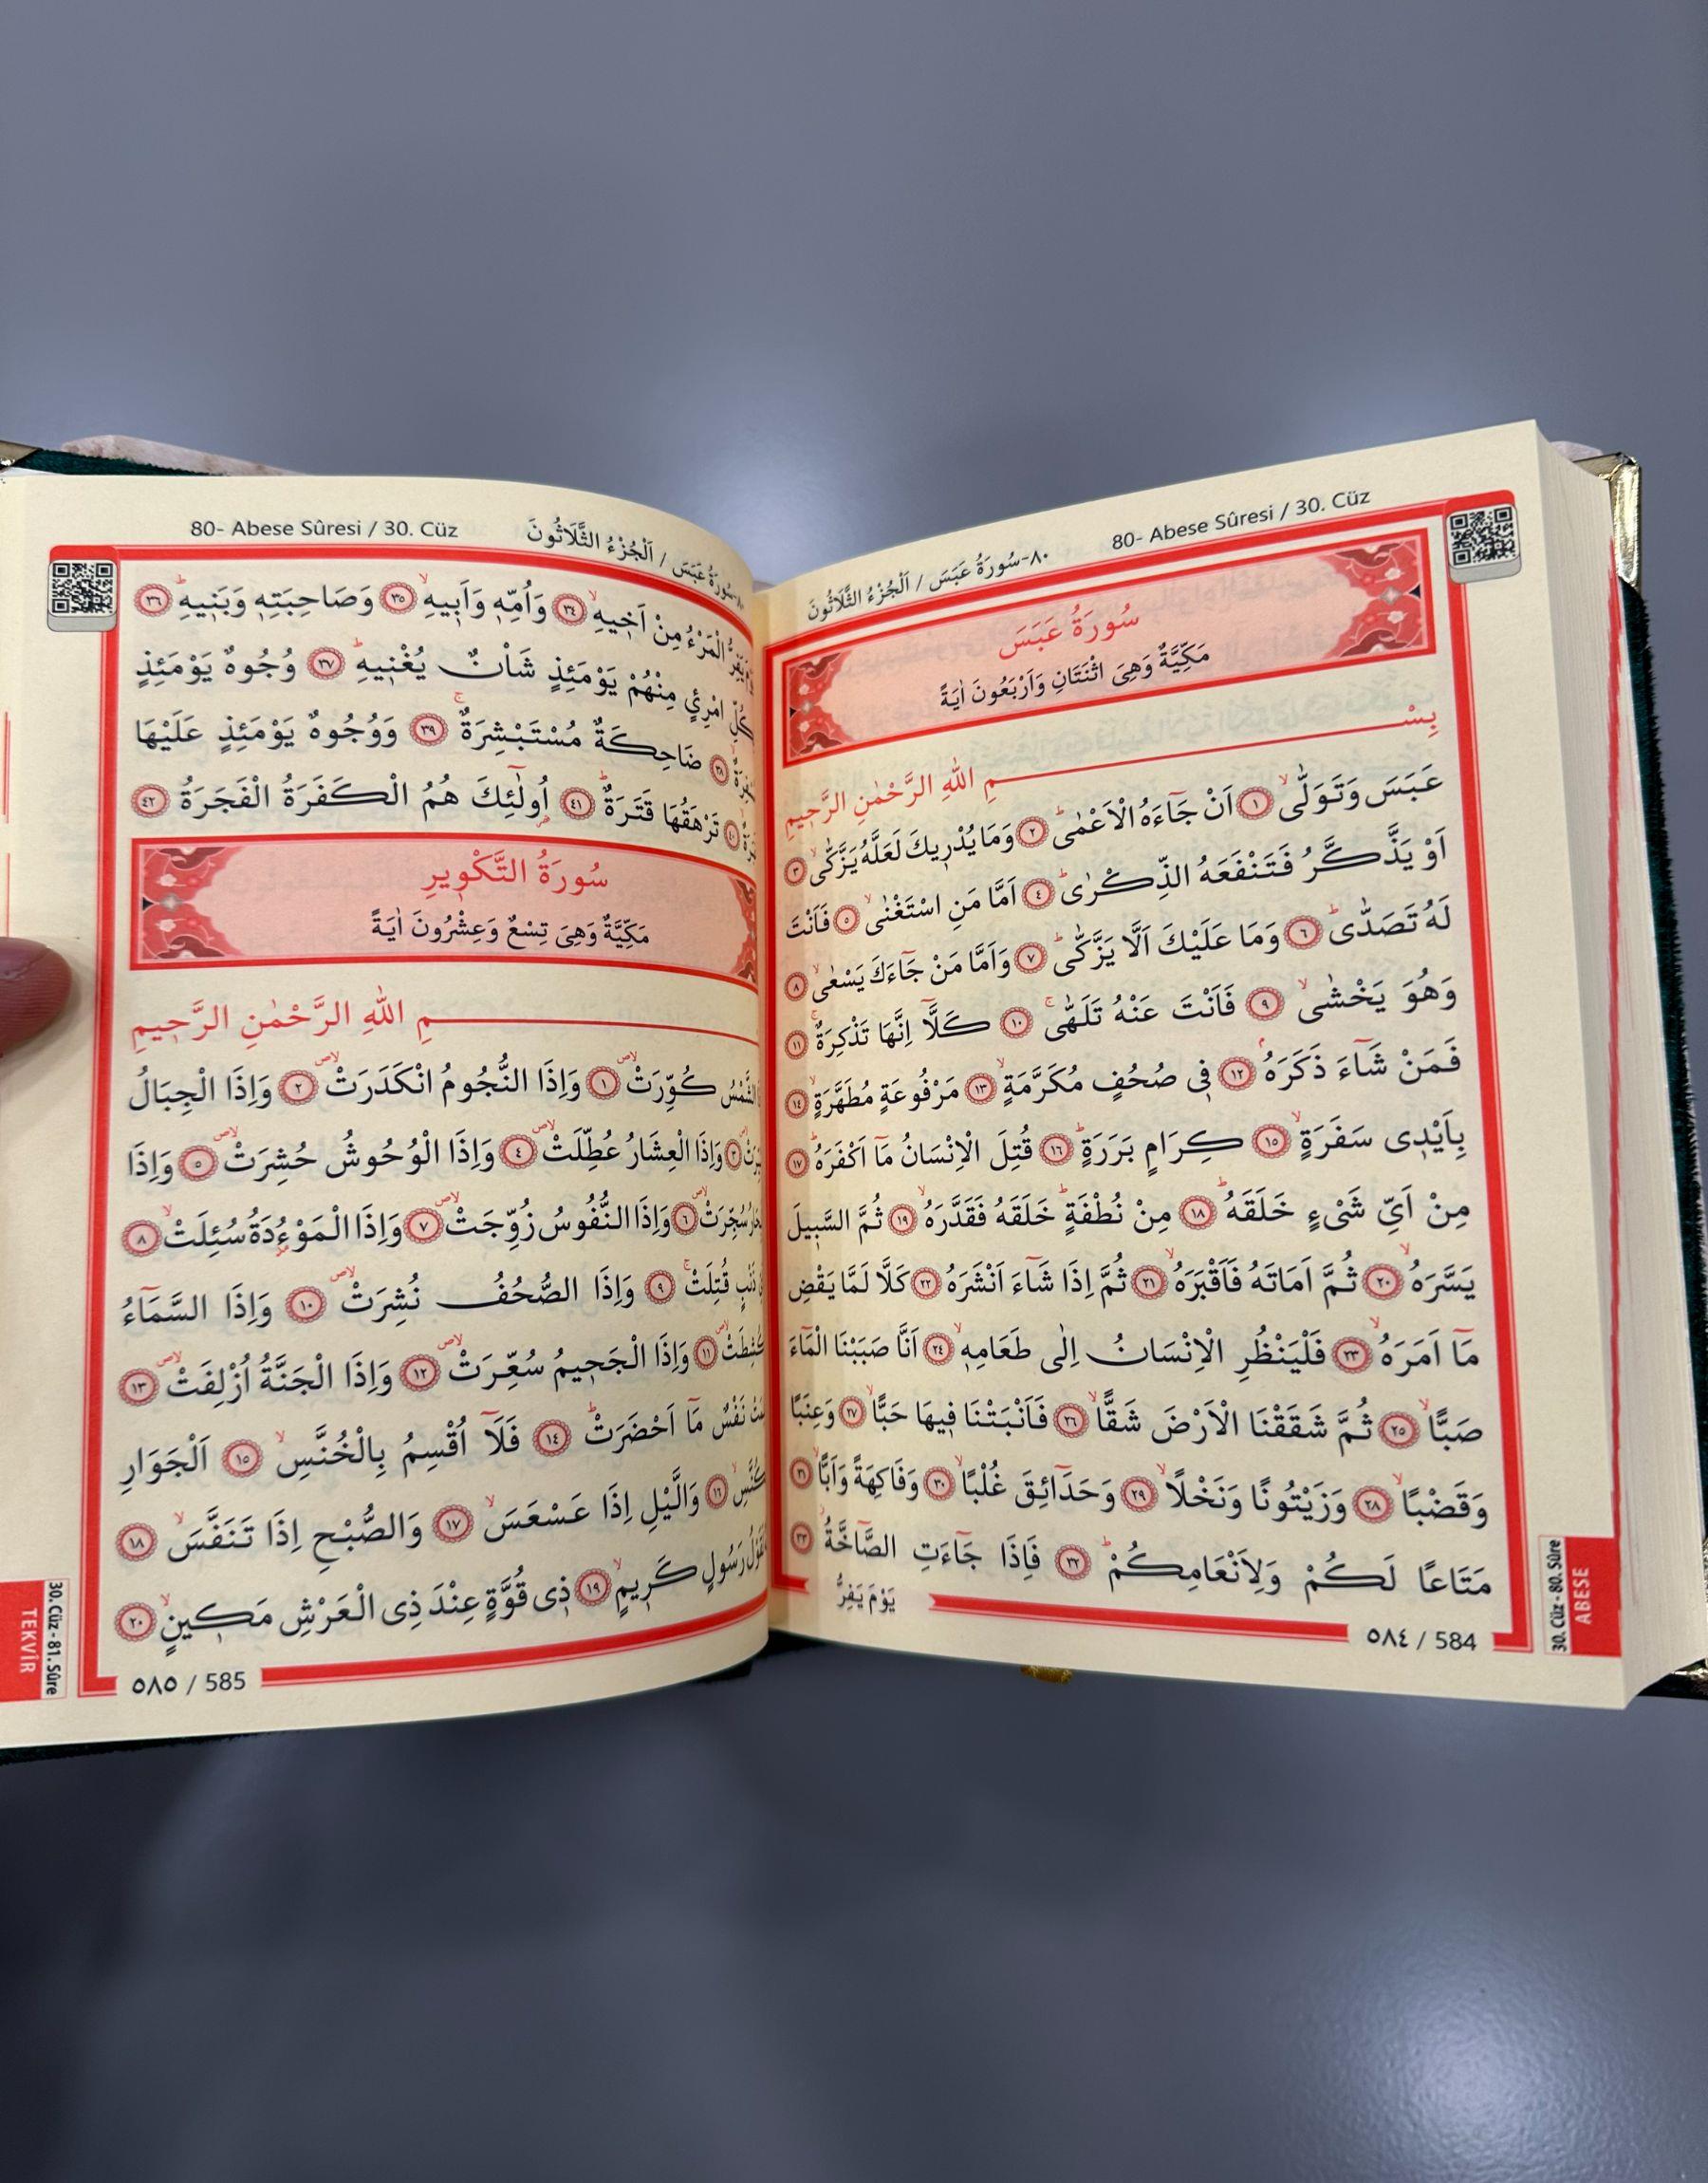 ٨٠-سُورَةُ عَبَسَ / اَلْجُزْءُ الثَّلَاثُونَ
80- Abese Sûresi / 30. Cüz
سُورَةُ عَبَسَ
مَكِّيَّةٌ وَهِىَ اثْنَتَانِ وَاَرْبَعُونَ اٰيَةً
بِسْمِ اللّٰهِ الرَّحْمٰنِ الرَّح۪يمِ
عَبَسَ وَتَوَلّٰىۙ ﴿١﴾ اَنْ جَٓاءَهُ الْاَعْمٰىۜ ﴿٢﴾ وَمَا يُدْر۪يكَ لَعَلَّهُ يَزَّكّٰىۙ ﴿٣﴾
اَوْ يَذَّكَّرُ فَتَنْفَعَهُ الذِّكْرٰىۜ ﴿٤﴾ اَمَّا مَنِ اسْتَغْنٰىۙ ﴿٥﴾ فَاَنْتَ
لَهُ تَصَدّٰىۜ ﴿٦﴾ وَمَا عَلَيْكَ اَلَّا يَزَّكّٰىۜ ﴿٧﴾ وَاَمَّا مَنْ جَٓاءَكَ يَسْعٰىۙ ﴿٨﴾
وَهُوَ يَخْشٰىۙ ﴿٩﴾ فَاَنْتَ عَنْهُ تَلَهّٰىۚ ﴿١٠﴾ كَلَّٓا اِنَّهَا تَذْكِرَةٌۚ ﴿١١﴾
فَمَنْ شَٓاءَ ذَكَرَهُۢ ﴿١٢﴾ ف۪ى صُحُفٍ مُكَرَّمَةٍۙ ﴿١٣﴾ مَرْفُوعَةٍ مُطَهَّرَةٍۙ ﴿١٤﴾
بِاَيْد۪ى سَفَرَةٍۙ ﴿١٥﴾ كِرَامٍ بَرَرَةٍۜ ﴿١٦﴾ قُتِلَ الْاِنْسَانُ مَٓا اَكْفَرَهُۜ ﴿١٧﴾
مِنْ اَىِّ شَىْءٍ خَلَقَهُۜ ﴿١٨﴾ مِنْ نُطْفَةٍۜ خَلَقَهُ فَقَدَّرَهُۙ ﴿١٩﴾ ثُمَّ السَّب۪يلَ
يَسَّرَهُۙ ﴿٢٠﴾ ثُمَّ اَمَاتَهُ فَاَقْبَرَهُۙ ﴿٢١﴾ ثُمَّ اِذَا شَٓاءَ اَنْشَرَهُ ﴿٢٢﴾ كَلَّا لَمَّا يَقْضِ
مَٓا اَمَرَهُۙ ﴿٢٣﴾ فَلْيَنْظُرِ الْاِنْسَانُ اِلٰى طَعَامِه۪ۙ ﴿٢٤﴾ اَنَّا صَبَبْنَا الْمَٓاءَ
صَبًّاۙ ﴿٢٥﴾ ثُمَّ شَقَقْنَا الْاَرْضَ شَقًّاۙ ﴿٢٦﴾ فَاَنْبَتْنَا ف۪يهَا حَبًّاۙ ﴿٢٧﴾ وَعِنَبًا
وَقَضْبًاۙ ﴿٢٨﴾ وَزَيْتُونًا وَنَخْلًاۙ ﴿٢٩﴾ وَحَدَٓائِقَ غُلْبًاۙ ﴿٣٠﴾ وَفَاكِهَةً وَاَبًّاۙ ﴿٣١﴾
مَتَاعًا لَكُمْ وَلِاَنْعَامِكُمْۜ ﴿٣٢﴾ فَاِذَا جَٓاءَتِ الصَّٓاخَّةُۘ ﴿٣٣﴾
يَوْمَ يَفِرُّ
٥٨٤ / 584
30. Cüz - 80. Sûre
ABESE
سُورَةُ عَبَسَ / اَلْجُزْءُ الثَّلَاثُونَ
80- Abese Sûresi / 30. Cüz
يَفِرُّ الْمَرْءُ مِنْ اَخ۪يهِۙ ﴿٣٤﴾ وَاُمِّه۪ وَاَب۪يهِۙ ﴿٣٥﴾ وَصَاحِبَتِه۪ وَبَن۪يهِۜ ﴿٣٦﴾
لِكُلِّ امْرِئٍ مِنْهُمْ يَوْمَئِذٍ شَاْنٌ يُغْن۪يهِۜ ﴿٣٧﴾ وُجُوهٌ يَوْمَئِذٍ
﴿٣٨﴾ ضَاحِكَةٌ مُسْتَبْشِرَةٌۚ ﴿٣٩﴾ وَوُجُوهٌ يَوْمَئِذٍ عَلَيْهَا
﴿٤٠﴾ تَرْهَقُهَا قَتَرَةٌۜ ﴿٤١﴾ اُو۬لٰٓئِكَ هُمُ الْكَفَرَةُ الْفَجَرَةُ ﴿٤٢﴾
سُورَةُ التَّكْو۪يرِ
مَكِّيَّةٌ وَهِىَ تِسْعٌ وَعِشْرُونَ اٰيَةً
مِ اللّٰهِ الرَّحْمٰنِ الرَّح۪يمِ
الشَّمْسُ كُوِّرَتْۖ ﴿١﴾ وَاِذَا النُّجُومُ انْكَدَرَتْۖ ﴿٢﴾ وَاِذَا الْجِبَالُ
﴿٣﴾ وَاِذَا الْعِشَارُ عُطِّلَتْۖ ﴿٤﴾ وَاِذَا الْوُحُوشُ حُشِرَتْۖ ﴿٥﴾ وَاِذَا
سُجِّرَتْۖ ﴿٦﴾ وَاِذَا النُّفُوسُ زُوِّجَتْۖ ﴿٧﴾ وَاِذَا الْمَوْءُ۫دَةُ سُئِلَتْۙ ﴿٨﴾
ذَنْبٍ قُتِلَتْۚ ﴿٩﴾ وَاِذَا الصُّحُفُ نُشِرَتْۖ ﴿١٠﴾ وَاِذَا السَّمَٓاءُ
كُشِطَتْۖ ﴿١١﴾ وَاِذَا الْجَح۪يمُ سُعِّرَتْۖ ﴿١٢﴾ وَاِذَا الْجَنَّةُ اُزْلِفَتْۖ ﴿١٣﴾
نَفْسٌ مَٓا اَحْضَرَتْۜ ﴿١٤﴾ فَلَٓا اُقْسِمُ بِالْخُنَّسِۙ ﴿١٥﴾ اَلْجَوَارِ
الْكُنَّسِۙ ﴿١٦﴾ وَالَّيْلِ اِذَا عَسْعَسَۙ ﴿١٧﴾ وَالصُّبْحِ اِذَا تَنَفَّسَۙ ﴿١٨﴾
لَقَوْلُ رَسُولٍ كَر۪يمٍۙ ﴿١٩﴾ ذ۪ى قُوَّةٍ عِنْدَ ذِى الْعَرْشِ مَك۪ينٍۙ ﴿٢٠﴾
٥٨٥ / 585
30. Cüz - 81. Sûre
TEKVİR